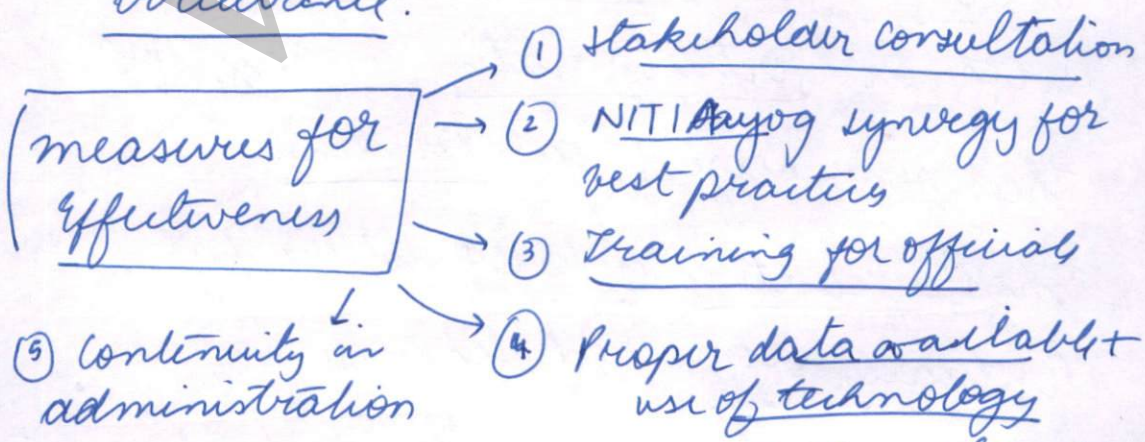 measures for
Effectiveness
① Stakeholder consultation
② NITI Aayog synergy for
best practices
③ Training for officials
④ Proper data available +
use of technology
⑤ Continuity in
administration